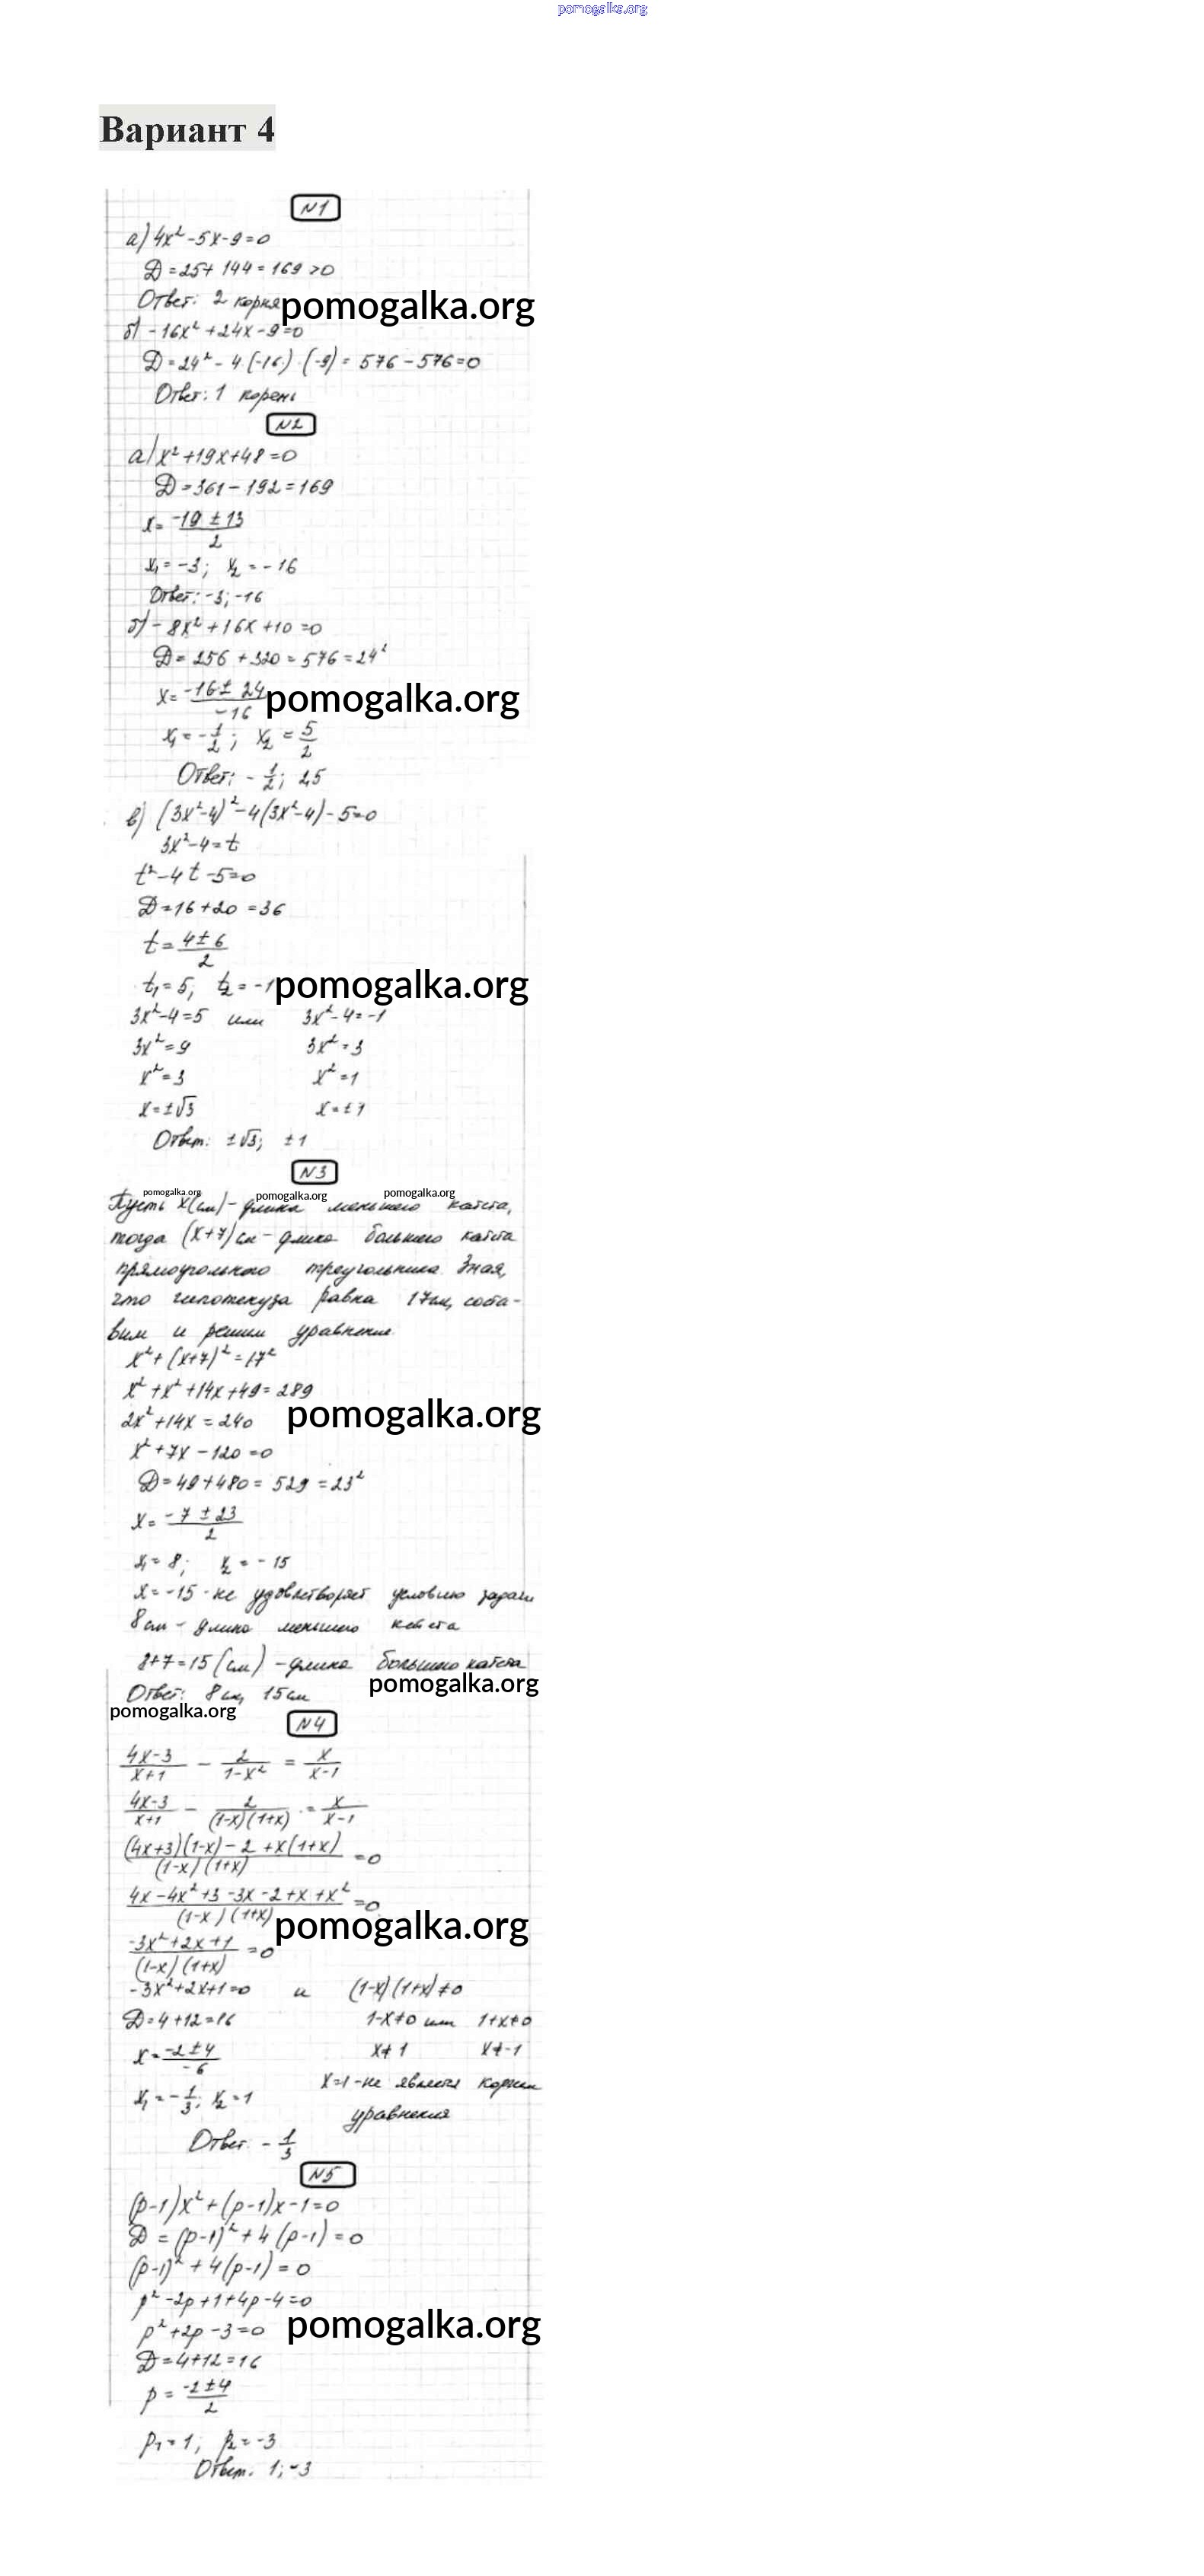 pomogalka.org
Вариант 4
N1
а) 4x² - 5x - 9 = 0
D = 25 + 144 = 169 > 0
Ответ: 2 корня pomogalka.org
б) - 16x² + 24x - 9 = 0
D = 24² - 4·(-16)·(-9) = 576 - 576 = 0
Ответ: 1 корень
N2
а) x² + 19x + 48 = 0
D = 361 - 192 = 169
x = (-19 ± 13)/2
x₁ = -3; x₂ = -16
Ответ: -3; -16
б) - 8x² + 16x + 10 = 0
D = 256 + 320 = 576 = 24²
x = (-16 ± 24)/(-16) pomogalka.org
x₁ = -1/2; x₂ = 5/2
Ответ: -1/2; 2,5
в) (3x²-4)² - 4(3x²-4) - 5 = 0
3x² - 4 = t
t² - 4t - 5 = 0
D = 16 + 20 = 36
t = (4 ± 6)/2
t₁ = 5; t₂ = -1 pomogalka.org
3x² - 4 = 5 или 3x² - 4 = -1
3x² = 9 3x² = 3
x² = 3 x² = 1
x = ±√3 x = ±1
Ответ: ±√3; ±1
N3
pomogalka.org pomogalka.org pomogalka.org
Пусть x(см) - длина меньшего катета,
тогда (x+7) см - длина большего катета
прямоугольного треугольника. Зная,
что гипотенуза равна 17см, соста-
вим и решим уравнение
x² + (x+7)² = 17²
x² + x² + 14x + 49 = 289
2x² + 14x = 240 pomogalka.org
x² + 7x - 120 = 0
D = 49 + 480 = 529 = 23²
x = (-7 ± 23)/2
x₁ = 8; x₂ = -15
x = -15 - не удовлетворяет условию задачи
8 см - длина меньшего катета
8+7 = 15 (см) - длина большего катета
pomogalka.org
Ответ: 8 см, 15 см
pomogalka.org
N4
(4x-3)/(x+1) - 2/(1-x²) = x/(x-1)
(4x-3)/(x+1) - 2/((1-x)(1+x)) = x/(x-1)
((4x+3)(1-x) - 2 + x(1+x))/((1-x)(1+x)) = 0
(4x - 4x² + 3 - 3x - 2 + x + x²)/((1-x)(1+x)) = 0
pomogalka.org
(-3x² + 2x + 1)/((1-x)(1+x)) = 0
-3x² + 2x + 1 = 0 и (1-x)(1+x) ≠ 0
D = 4 + 12 = 16 1-x ≠ 0 или 1+x ≠ 0
x = (-2 ± 4)/(-6) x ≠ 1 x ≠ -1
x = 1 - не является корнем
x₁ = -1/3; x₂ = 1
уравнения
Ответ: -1/3
N5
(p-1)x² + (p-1)x - 1 = 0
D = (p-1)² + 4(p-1) = 0
(p-1)² + 4(p-1) = 0
p² - 2p + 1 + 4p - 4 = 0
p² + 2p - 3 = 0 pomogalka.org
D = 4 + 12 = 16
p = (-2 ± 4)/2
p₁ = 1; p₂ = -3
Ответ: 1; -3